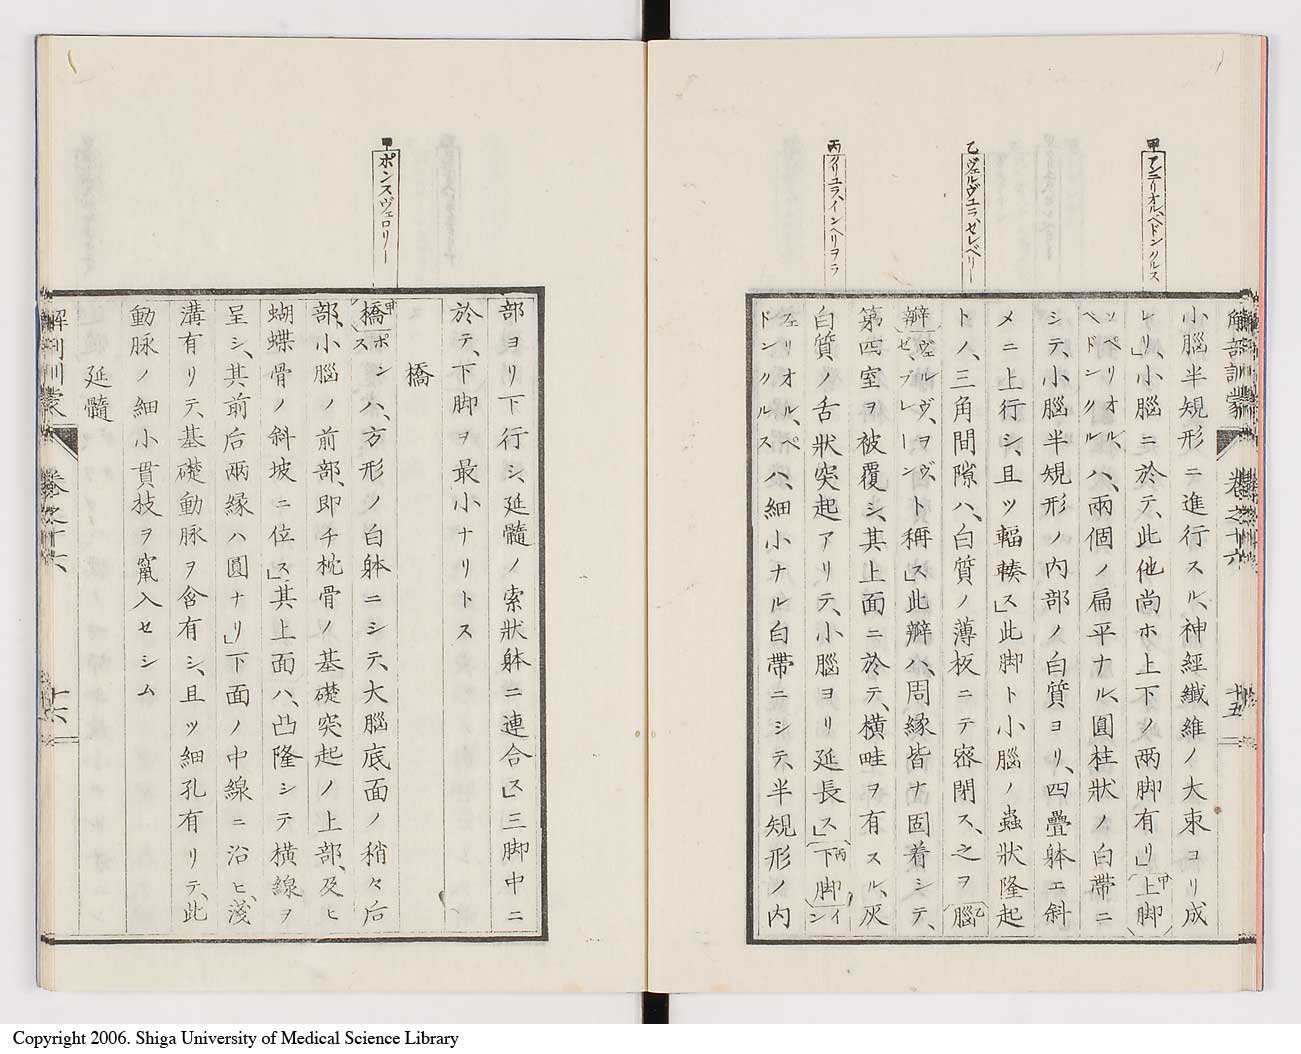 甲アンテリオル、ペドンクルス
乙ヴェルヴュラ、セレベリー
丙クリユラ、インヘリヲラ
解剖訓蒙 巻之十六 十五
小腦半規形ニ進行スル、神經纖維ノ大束コリ成
レリ」小腦ニ於テ、此他尚ホ上下ノ兩脚有リ」上脚甲
ソペリオル、ペドンクルハ、兩個ノ扁平ナル、圓柱狀ノ白帶ニ
シテ、小腦半規形ノ内部ノ白質ヨリ、四疊躰エ斜
メニ上行シ、且ツ輻輳ス」此脚ト小腦ノ蟲狀隆起
トノ、三角間隙ハ、白質ノ薄板ニテ密閉ス、之ヲ腦乙
辧ヴェルヴ、ヲヴ、ゼブレーント稱ス」此辧ハ、周縁皆ナ固着シテ、
第四室ヲ被覆シ、其上面ニ於テ、橫畦ヲ有スル、灰
白質ノ舌狀突起アリテ、小腦ヨリ延長ス」下脚丙イン
フェリオル、ペドンクルスハ、細小ナル白帶ニシテ、半規形ノ内
甲ポンスヴェロリー
部ヨリ下行シ、延髓ノ索狀躰ニ連合ス」三脚中ニ
於テ、下脚ヲ最小ナリトス
橋
橋甲ポンスハ、方形ノ白躰ニシテ、大腦底面ノ稍々后
部、小腦ノ前部、即チ枕骨ノ基礎突起ノ上部、及ヒ
蝴蝶骨ノ斜坡ニ位ス」其上面ハ、凸隆シテ橫線ヲ
呈シ、其前后兩縁ハ圓ナリ」下面ノ中線ニ沿ヒ、淺
溝有リテ、基礎動脉ヲ含有シ、且ツ細孔有リテ、此
動脉ノ細小貫枝ヲ竄入セシム
延髓
解剖訓蒙 巻之十六 十六
Copyright 2006. Shiga University of Medical Science Library